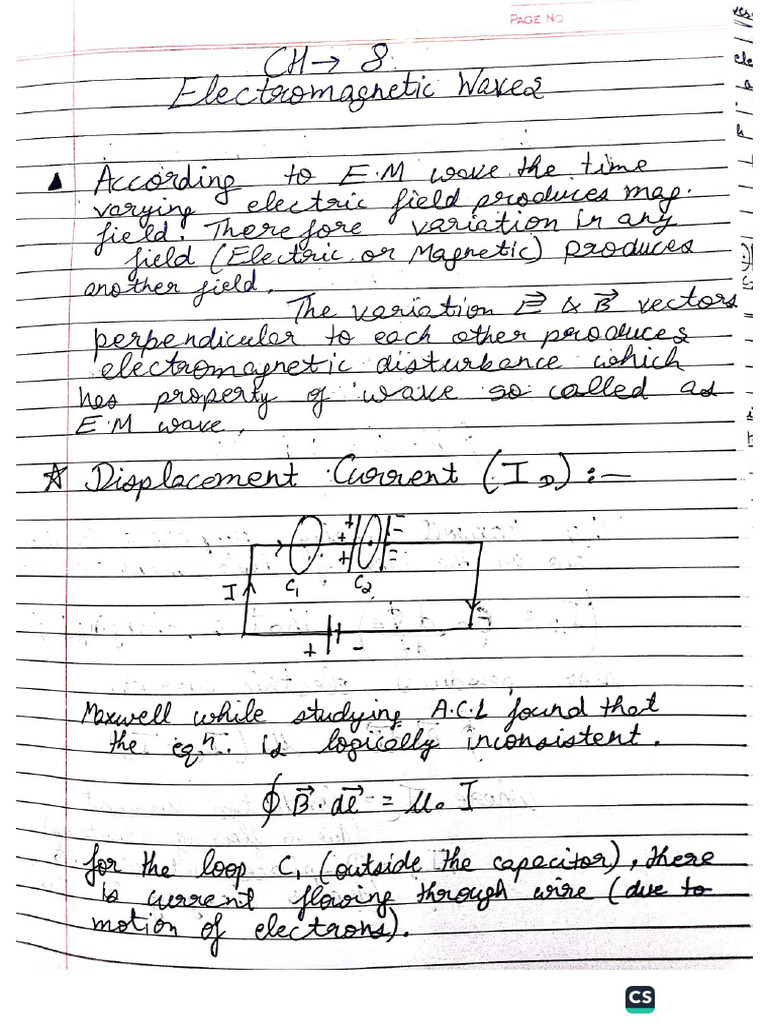 PAGE NO
CH → 8
Electromagnetic Waves
According to E.M wave the time
varying electric field produces mag.
field. Therefore variation in any
field (Electric or Magnetic) produces
another field.
The variation E⃗ & B⃗ vectors
perpendicular to each other produces
electromagnetic disturbance which
has property of wave so called as
E.M wave.
☆ Displacement Current (I_D) :—
+ + + − − =
I C₁ C₂
+ −
Maxwell while studying A.C.L found that
the eqⁿ. is logically inconsistent.
∮ B⃗ · dl⃗ = μ₀ I
for the loop C₁ (outside the capacitor), there
is current flowing through wire (due to
motion of electrons).
CS